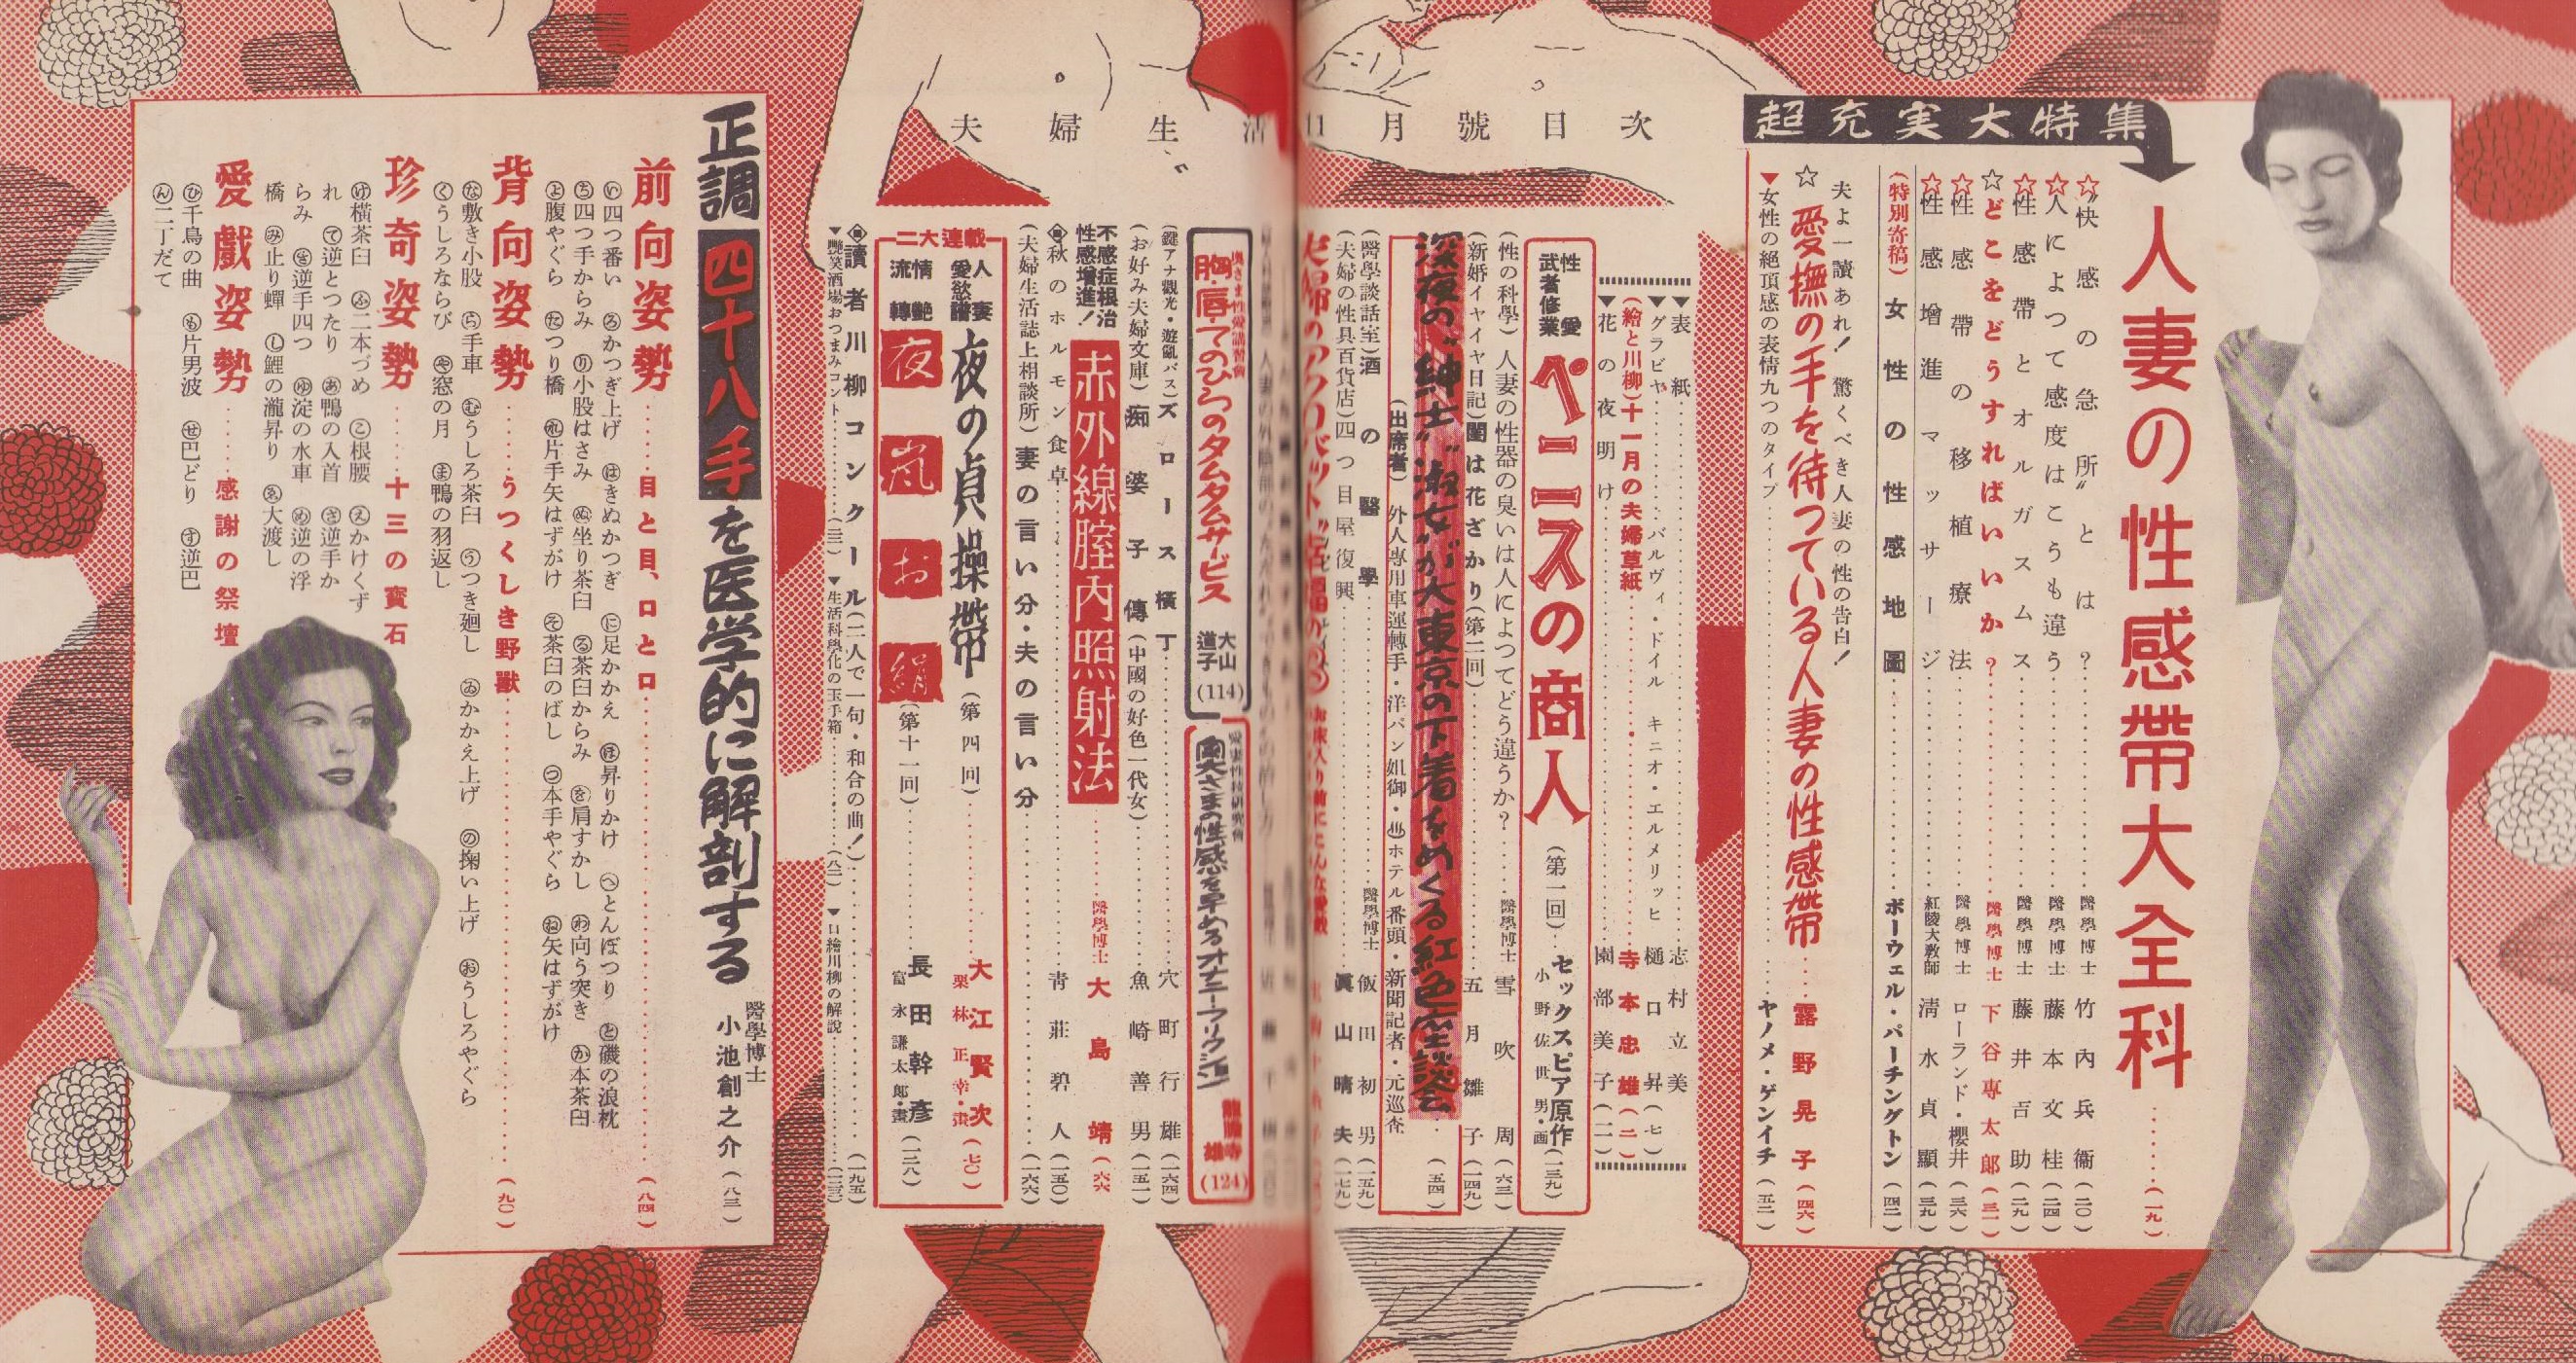 夫婦生活 11月號目次
超充実大特集
人妻の性感帶大全科……(一九)
☆“快感の急所”とは?……醫學博士 竹內兵衞(二〇)
☆人によつて感度はこうも違う……醫學博士 藤本文桂(二四)
☆性感帶とオルガスムス……醫學博士 藤井吉助(二九)
☆どこをどうすればいいか?……醫學博士 下谷専太郎(三一)
☆性感帶の移植療法……醫學博士 ローランド・櫻井(三六)
☆性感增進のマッサージ……紅陵大敎師 淸水貞顯(三九)
(特別寄稿)女性の性感地圖……ボーウェル・パーチングトン(四二)
夫よ一讀あれ!驚くべき人妻の性の告白!
☆愛撫の手を待つている人妻の性感帶……露野晃子(四六)
▼女性の絶頂感の表情九つのタイプ……ヤノメ・ゲンイチ(五二)
▼表紙……志村立美
▼グラビヤ……バルヴィ・ドイル キニオ・エルメリッヒ 樋口昇(七)
(繪と川柳)十一月の夫婦草紙……寺本忠雄(二)
▼花の夜明け……園部美子(二)
性愛武者修業 ペニスの商人(第一回)…セックスピア原作 小野佐世男・画(一三九)
(性の科學)人妻の性器の臭いは人によつてどう違うか?……醫學博士 雪吹周(六三)
(新婚イヤイヤ日記)閨は花ざかり(第二回)……五月雛子(一四九)
深夜の“紳士”淑女”が大東京の下着をめくる紅色座談会……(五四)
(出席者)外人專用車運轉手・洋パン姐御・ホテル番頭・新聞記者・元巡査
(醫學談話室)酒の醫學……醫學博士 飯田初男(一五九)
(夫婦の性具百貨店)四つ目屋復興……眞山晴夫(一七九)
奧さま性愛講習會
胸・唇・てのひらのタムタムサービス 大山道子(114)
愛妻性技研究會
奥さまの性感を早めるオナニーフリクション (124)
(鍵アナ觀光・遊覽バス)ズロース橫丁……穴町行雄(一六四)
(お好み夫婦文庫)痴婆子傳(中國の好色一代女)……魚崎善男(一五二)
不感症根治性感增進!赤外線腟內照射法……醫學博士 大島靖(六六)
秋のホルモン食卓……靑莊碧人(一五〇)
(夫婦生活誌上相談所)妻の言い分・夫の言い分……(一六六)
二大連載
人妻愛慾譜 夜の貞操帶(第四回)……大江賢次 栗林正幸・畫(七〇)
情艶流轉 夜嵐お絹(第十一回)……長田幹彦 富永謙太郎・畫(一二八)
讀者川柳コンクール(二人で一句・和合の曲!)……(一九五)
▼艶笑酒場おつまみコント……(三三) ▼生活科學化の玉手箱……(八二) ▼口繪川柳の解說……(一三三)
正調四十八手を医学的に解剖する 醫學博士 小池創之介(八三)
前向姿勢……目と目、口と口……(八四)
い四つ番い ろかつぎ上げ はきぬかつぎ に足かかえ ほ昇りかけ へとんぼつり と磯の浪枕
ち四つ手からみ り小股はさみ ぬ坐り茶臼 る茶臼からみ を肩すかし わ向う突き か本茶臼
よ腹やぐら たつり橋 れ片手矢はずがけ そ茶臼のばし つ本手やぐら ね矢はずがけ
背向姿勢……うつくしき野獸……(九〇)
な敷き小股 ら手車 むうしろ茶臼 うつき廻し ゐかかえ上げ の掬い上げ おうしろやぐら
くうしろならび や窓の月 ま鴨の羽返し
珍奇姿勢……十三の寳石
け橫茶臼 ふ二本づめ こ根腰 えかけくず
れ て逆とつたり あ鴨の入首 さ逆手か
らみ き逆手四つ ゆ淀の水車 め逆の浮
橋 み止り蟬 し鯉の瀧昇り ゑ大渡し
愛戲姿勢……感謝の祭壇
ひ千鳥の曲 も片男波 せ巴どり す逆巴
ん二丁だて